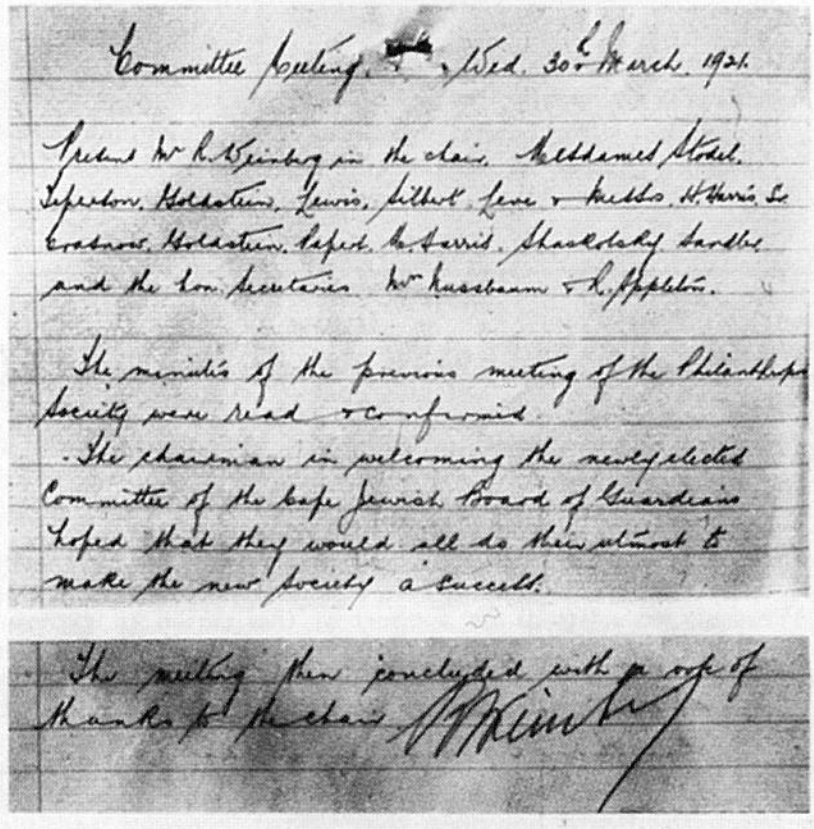 Committee Meeting. Wed. 30th March. 1921.
Present Mr R. Weinberg in the chair. Mesdames Stodel,
Goldstein, Lewis, Silbert, Leve & Messrs. H. Harris, Dr
Goldstein, Papert, Harris, Shaskolsky, Sandler,
and the hon. Secretaries Mr Nussbaum & R. Appleton.
The minutes of the previous meeting of the Philanthropic
Society were read & confirmed.
The chairman in welcoming the newly elected
Committee of the Cape Jewish Board of Guardians
hoped that they would all do their utmost to
make the new Society a success.
The meeting then concluded with a vote of
thanks to the chair
R Weinberg